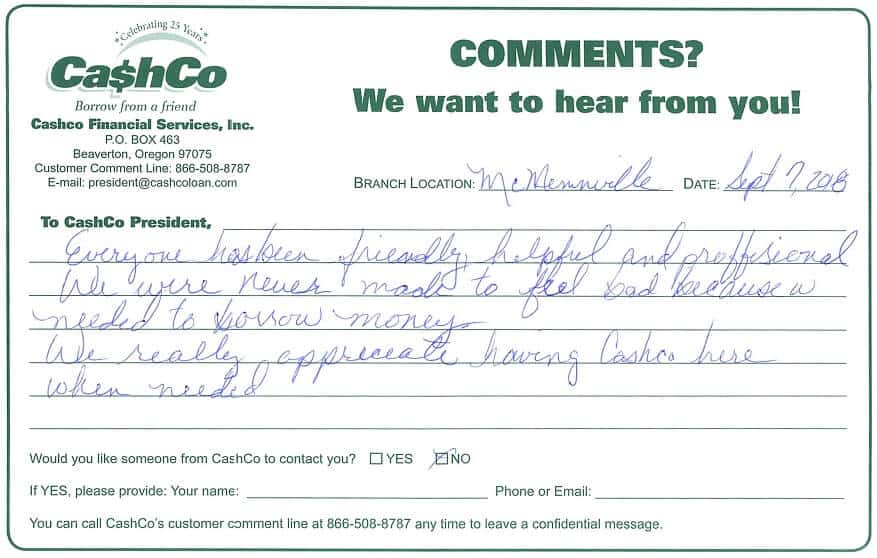 Celebrating 25 Years
Ca$hCo
Borrow from a friend
Cashco Financial Services, Inc.
P.O. BOX 463
Beaverton, Oregon 97075
Customer Comment Line: 866-508-8787
E-mail: president@cashcoloan.com
COMMENTS?
We want to hear from you!
BRANCH LOCATION: McMennville DATE: Sept 7, 2018
To CashCo President,
Everyone has been friendly, helpful and proffisional
We were never made to feel bad because w
needed to borrow money
We really appreceate having Cashco here
when needed
Would you like someone from CashCo to contact you? YES NO
If YES, please provide: Your name: Phone or Email:
You can call CashCo's customer comment line at 866-508-8787 any time to leave a confidential message.